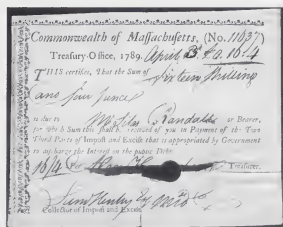 Commonwealth of Massachusetts, (No. 11037)
Treasury-Office, 1789. April 3d £0.16/4
THIS certifies, That the Sum of Sixteen Shilling
and four pence
is due to Mr Silas C Randall or Bearer,
for which Sum this shall be received of you in Payment of the Two
Third Parts of Impost and Excise that is appropriated by Government
to discharge the Interest on the public Debt.
16/4 Treasurer.
Collector of Impost and Excise.